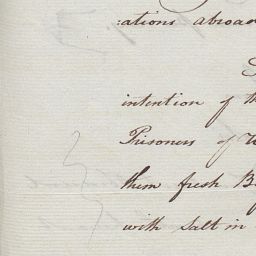 :ations abroad
intention of th
Prisoners of W
them fresh Be
with Salt in